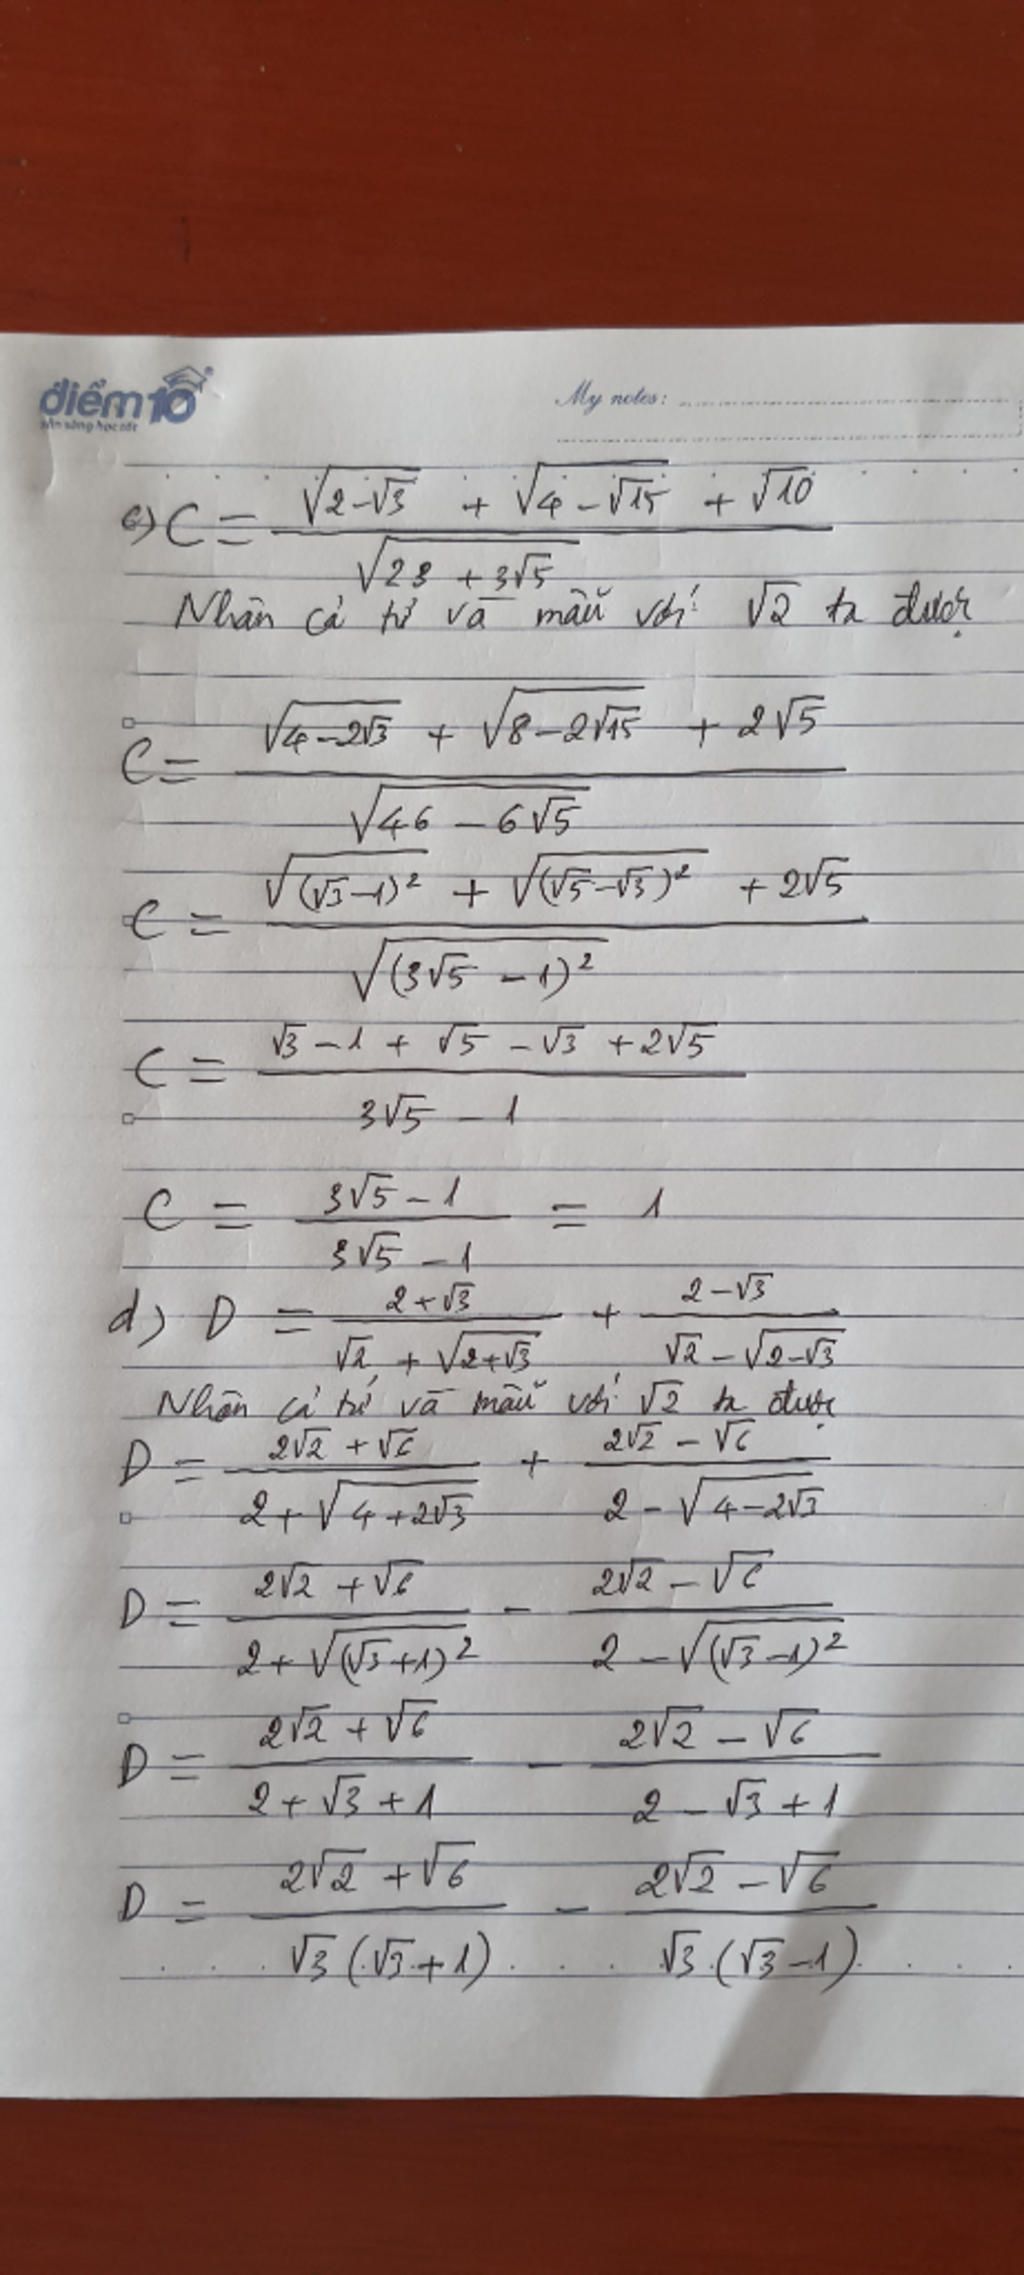 điểm10
sẵn sàng học tốt
My notes:
c) C = (√(2-√3) + √(4-√15) + √10) / √(23 + 3√5)
Nhân cả tử và mẫu với √2 ta được
C = (√(4-2√3) + √(8-2√15) + 2√5) / √(46 - 6√5)
C = (√((√3-1)²) + √((√5-√3)²) + 2√5) / √((3√5 - 1)²)
C = (√3 - 1 + √5 - √3 + 2√5) / (3√5 - 1)
C = (3√5 - 1) / (3√5 - 1) = 1
d) D = (2+√3) / (√2 + √(2+√3)) + (2-√3) / (√2 - √(2-√3))
Nhân cả tử và mẫu với √2 ta được
D = (2√2 + √6) / (2 + √(4+2√3)) + (2√2 - √6) / (2 - √(4-2√3))
D = (2√2 + √6) / (2 + √((√3+1)²)) - (2√2 - √6) / (2 - √((√3-1)²))
D = (2√2 + √6) / (2 + √3 + 1) - (2√2 - √6) / (2 - √3 + 1)
D = (2√2 + √6) / (√3(√3+1)) - (2√2 - √6) / (√3.(√3-1))